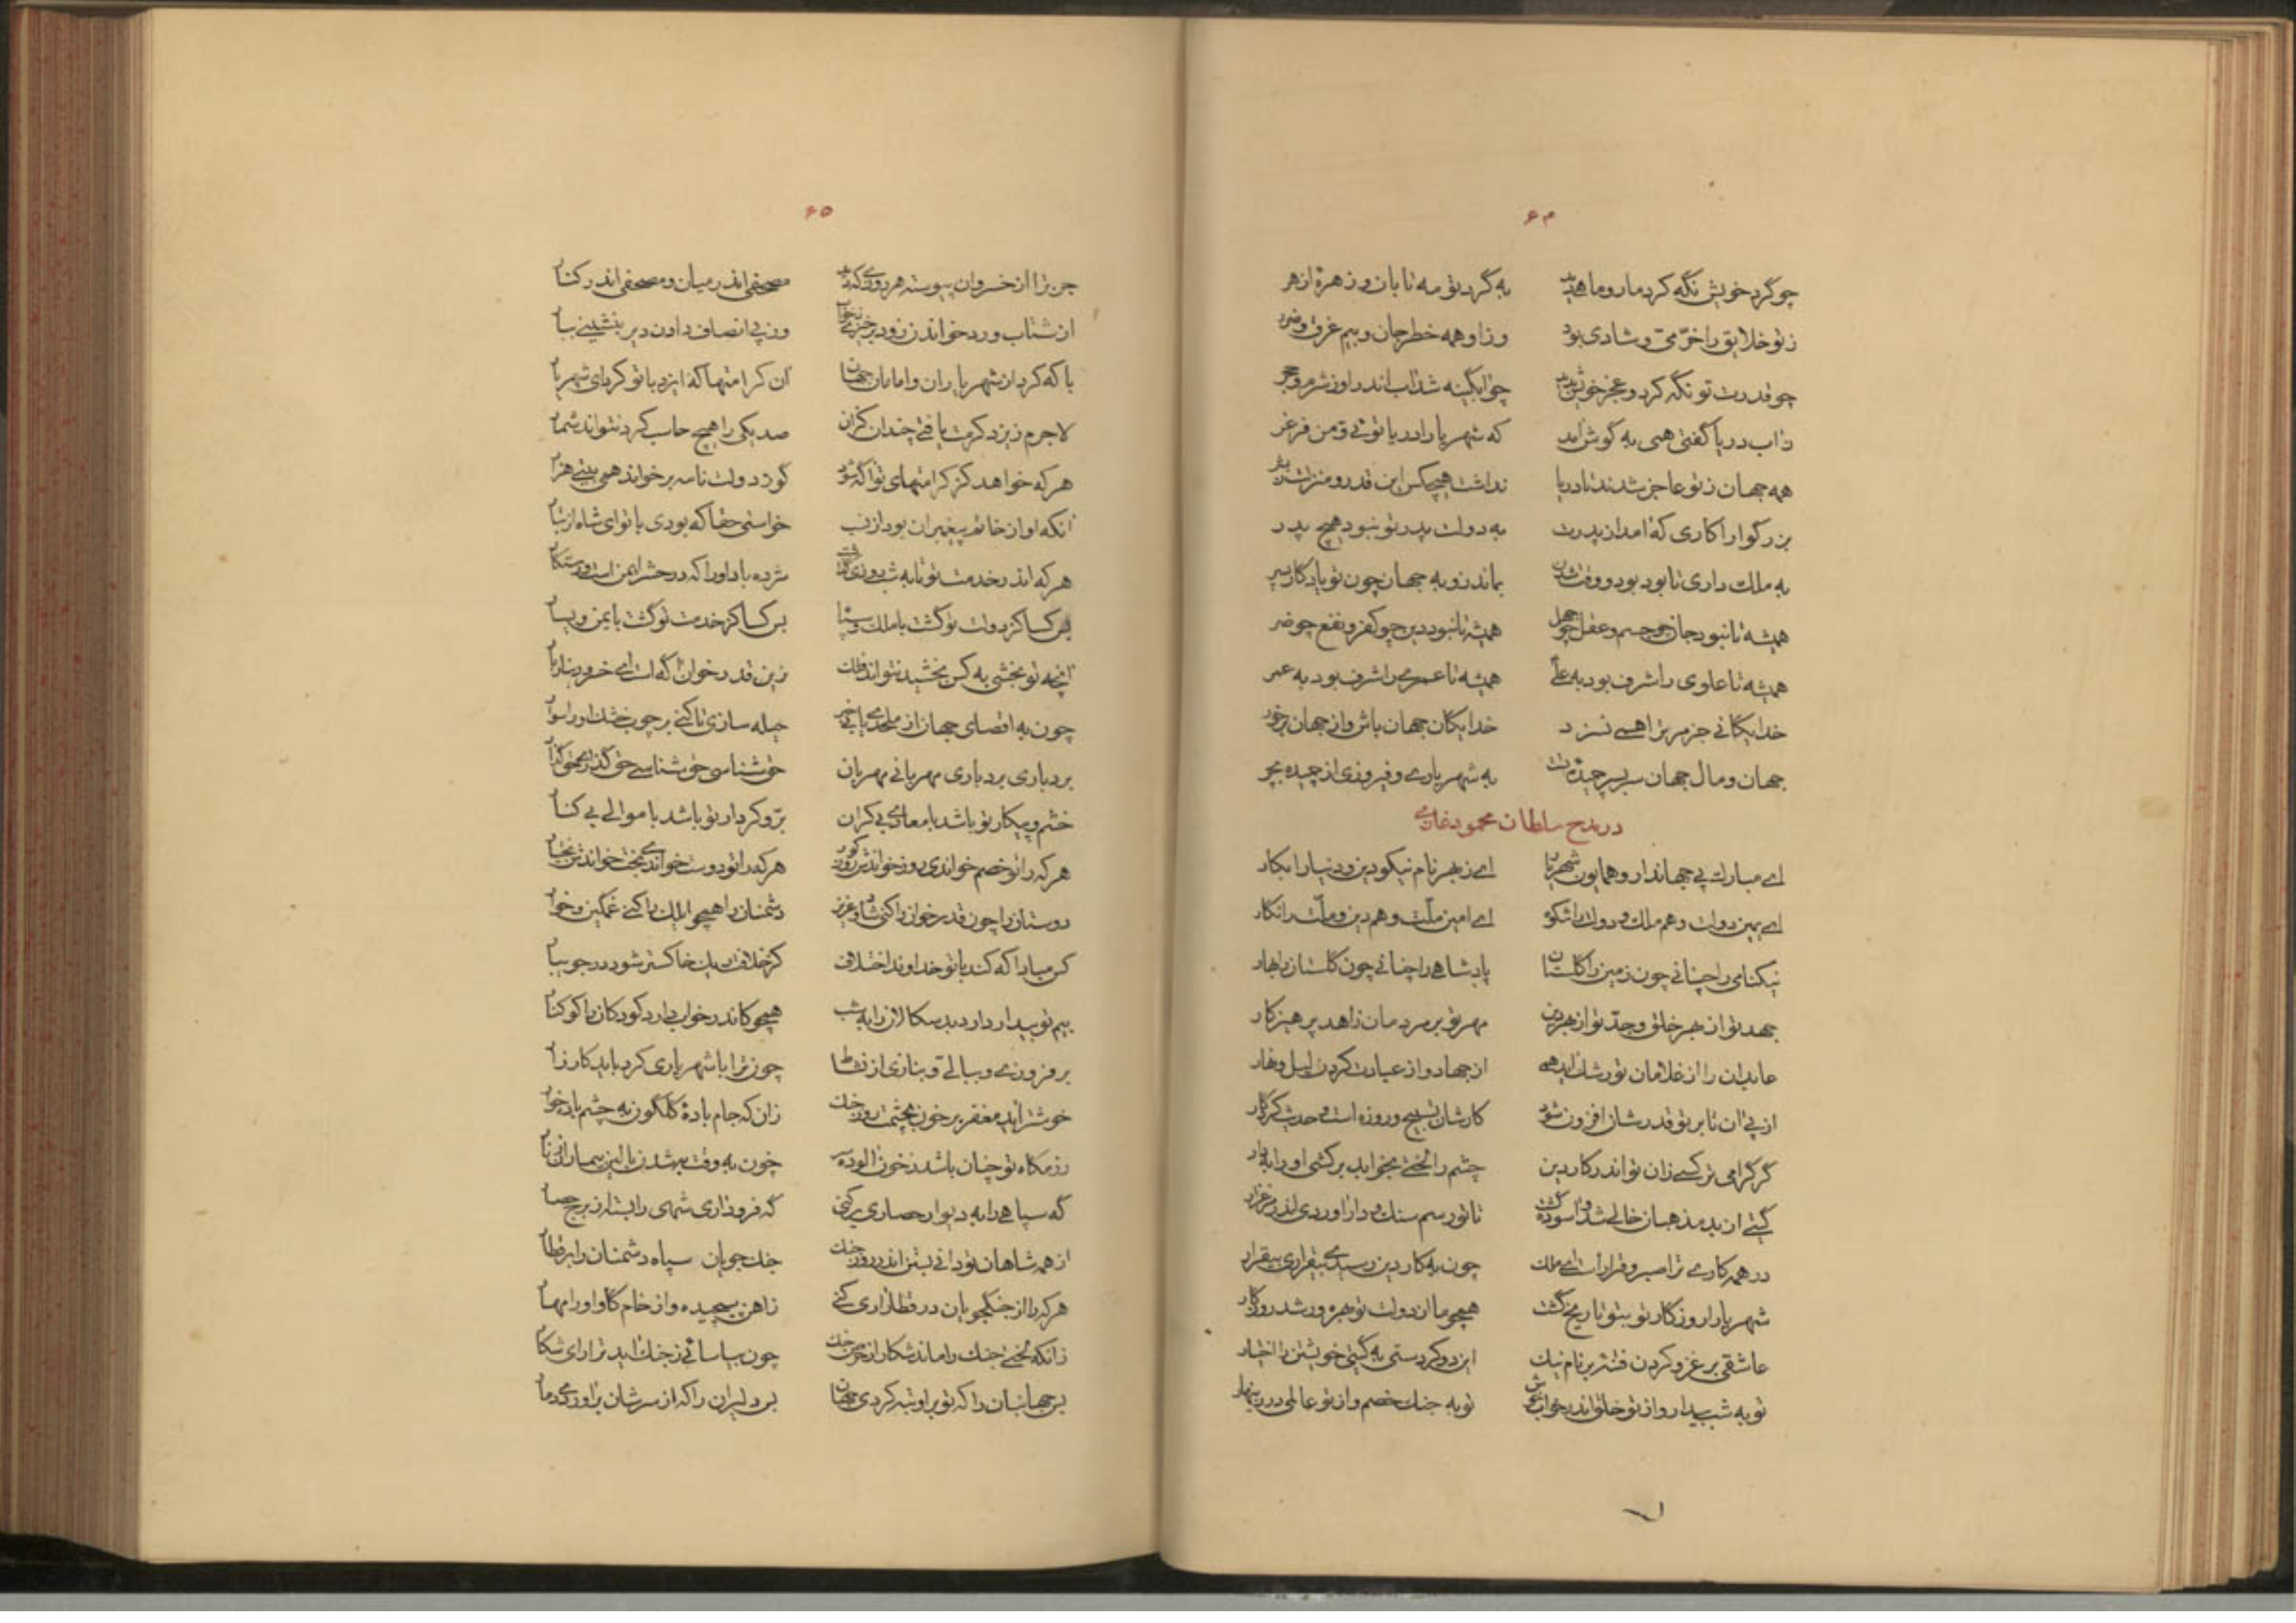 ۶۴
چو گرد خویش نگه کرد مار و ماهی دید به گرد تو مه تابان و زهرهٔ ازهر
ز تو خلایق را خرّمی و شادی بود وز او همه خطر جان و بیم غرق و ضرر
چو قدرت تو نگه کرد و عجز خویش بدید چو آبگینه شد آب اندر او ز شرم و حجر
ز آب دریا گفتی همی به گوش آمد که شهریارا دریا توئی و من فرغر
همه جهان ز تو عاجز شدند تا دریا نداشت هیچکس این قدر و منزلت ز بشر
بزرگوارا کاری که آمد از پدرت به دولت پدر تو نبود هیچ پدر
به ملک داری تا بود بود و وقت شدن بماند زو به جهان چون تو یادگار پسر
همیشه تا نبود جان چو جسم و عقل چو جهل همیشه تا نبود دین چو کفر و نفع چو ضر
همیشه تا علوی را شرف بود به علی همیشه تا عمری را شرف بود به عمر
خدایگانی جز مر ترا همی نسزد خدایگان جهان باش و از جهان برخور
جهان و مال جهان سربسر چیدهٔ تست به شهریاری و فیروزی از چیده بچر
در مدح سلطان محمود غازی
ای مبارک پی جهاندار و همایون شهریار ای ز بهر نام نیکو دین و دنیا را بکار
ای یمین دولت و هم ملک و دولت را شکوه ای امین ملّت و هم دین و ملّت را نگار
نیکنامی را چنانی چون زمین را گلستان پادشاهی را چنانی چون گلستان را بهار
جهد تو از بهر خلق و جدّ تو از بهر دین مهر تو بر مردمان زاهد پرهیزکار
عابدان را از غلامان تو رشک آید همی از جهاد و از عبادت کردن لیل و نهار
از پی آن تا بر تو قدرشان افزون شود کارشان تسبیح و روزه است و حدیث کردگار
گر گرامی تر کسی زان تو اندر کار دین چشم را لختی بخواباند برکشی او را به دار
گیتی از بد مذهبان خالی شد و آسوده گشت تا تو رسم سنگ و دار آوردی اندر مرغزار
در همه کاری ترا صبر و قرار است ای ملک چون به کار دین رسیدی بیقراری بیقرار
شهریارا روزگار تو بتو تاریخ گشت همچو ما از دولت تو بهره ور شد روزگار
عاشقی بر غزو کردن فتنهٔ بر نام نیک این دو کردستی به گیتی خویشتن را اختیار
تو به شب بیدار و از تو خلق اندر خواب خوش تو به جنگ خصم و از تو عالمی در زینهار
۶۵
جز ترا از خسروان پیوسته هر روزی که دید مصحفی اندر میان و مصحفی اندر کنار
از شتاب ورد خواندن زود برخیزی ز خواب وز پی انصاف دادن دیر بنشینی ببار
با که کرد از شهریاران و امامان جهان آن کرامتها که ایزد با تو کرد ای شهریار
لاجرم ز ایزد کرامت یافتی چندان کز آن صد یکی را هیچ حاسب کرد نتواند شمار
هر که خواهد کز کرامتهای تو آگه شود گو ز دولت نامه بر خواند همی بیتی هزار
آنکه او از خاتم پیغمبران بود از نسب خواستی حقا که بودی با تو ای شاه از تبار
هر که اندر خدمت تو تا به شب روزی گذاشت مژده باد او را که در حشر ایمن است و رستگار
بس کسا کز دولت تو گشت با ملک و ستا بس کسا کز خدمت تو گشت با یمن و یسار
آنچه تو بخشی به کس بخشید نتواند فلک زین قدر خوان آگه است ای خسرو دینار بار
چون به اقصای جهان از ملحدی یابی خبر حیله سازی تا کنی بر چوب خشک او را سوار
بردباری بردباری مهربانی مهربان حق شناسی حق شناسی حق گذاری حق گذار
خشم و پیکار تو باشد با معادی بی کران برّ و کردار تو باشد با موالی بی کنار
هر که را تو خصم خواندی روز خواندش روز کور هر که را تو دوست خواندی بخت خواندش بختیار
دوستان را چون قدر خوان را کنی شاد و عزیز دشمنان را همچو ایلک را کنی غمگین و خوار
کس مبادا که کند با تو خداوند اختلاف کز خلاف ایلک خاکستر شود در جویبار
بیم تو بیدار دارد بدسگالان را به شب همچو کاندر خواب دارد کودکان را کوکنار
برفروزی و ببالی و بنازی از نشاط چون ترا با شهریاری کرد باید کارزار
خوشتر آید مغفر پر خون بچشمت روز جنگ زان که جام بادهٔ گلگون به چشم باده خوار
رزمگاه تو چنان باشد ز خون آلوده سر چون به وقت به شدن بالین بیماران ز نار
گه سپاهی را به دیوار حصاری برکنی گه فرود آری شهی را بسته از برج حصار
از همه شاهان تو دانی بستن اندر روز جنگ جنگ جویان سپاه دشمنان را بر قطار
هر که را از جنگجویان در قطار آری کنی ز آهن پیچیده و از خام گاو او را مهار
زانکه لختی جنگ را ماند شکار از حرص جنگ چون بیاسائی ز جنگ آید ترا رای شکار
بر جهانبان را که تو بر او تبه کردی جهان بر دلیران را که از سرشان برآوردی دمار